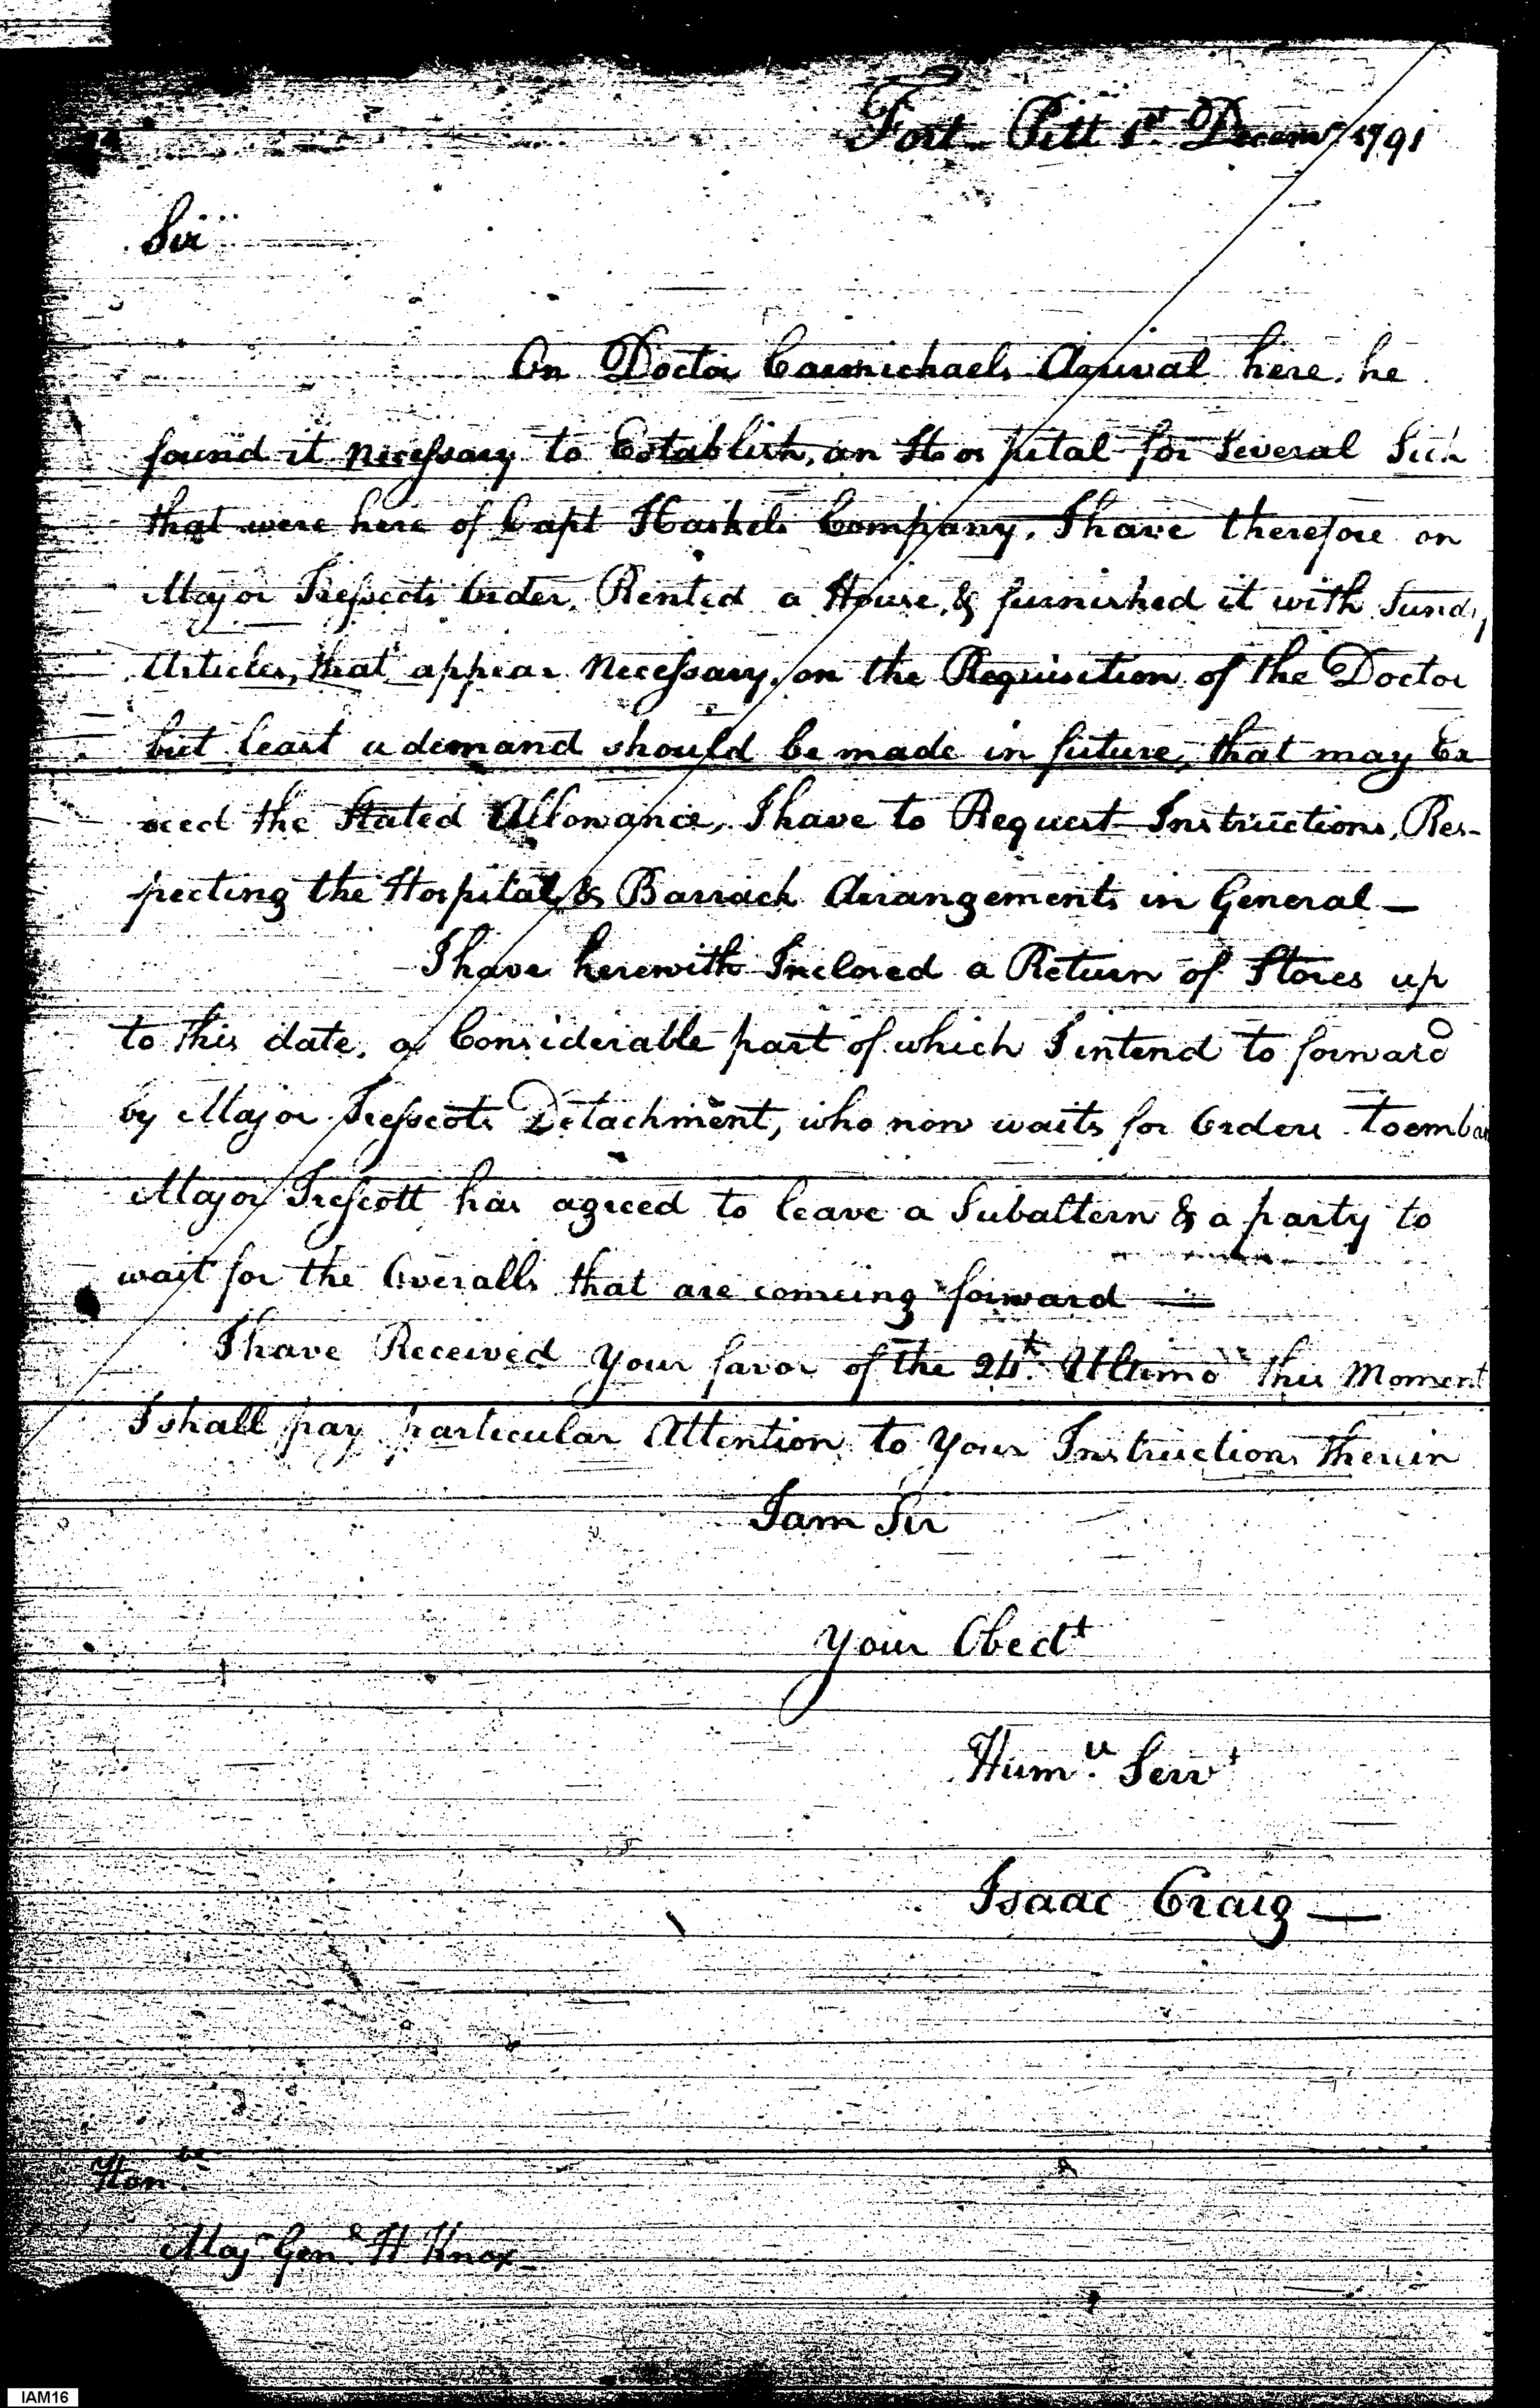 Fort Pitt 1st. Decemr 1791
Sir
On Doctor Carmichaels Arrival here, he
found it necessary to Establish, an Hospital for Several Sick
that were here of Capt Haskels Company, I have therefore on
Major Trescots Order, Rented a House, & furnished it with Sundy
Articles, that appear Necessary, on the Requisition of the Doctor
but least a demand should be made in future, that may Ex
ceed the Stated Allowance, I have to Request Instructions, Res-
pecting the Hospital & Barrack Arrangements in General —
I have herewith Inclosed a Return of Stores up
to this date, a Considerable part of which I intend to forward
by Major Trescots Detachment, who now waits for Orders to embar
Major Trescott has agreed to leave a Subaltern & a party to
wait for the Overalls that are comeing forward —
I have Received your favor of the 24th. Ultimo this Moment
I shall pay particular Attention to your Instructions therein
I am Sir
your Obedt
Humle. Servt
Isaac Craig —
Honble.
Majr Genl. H Knox
IAM16